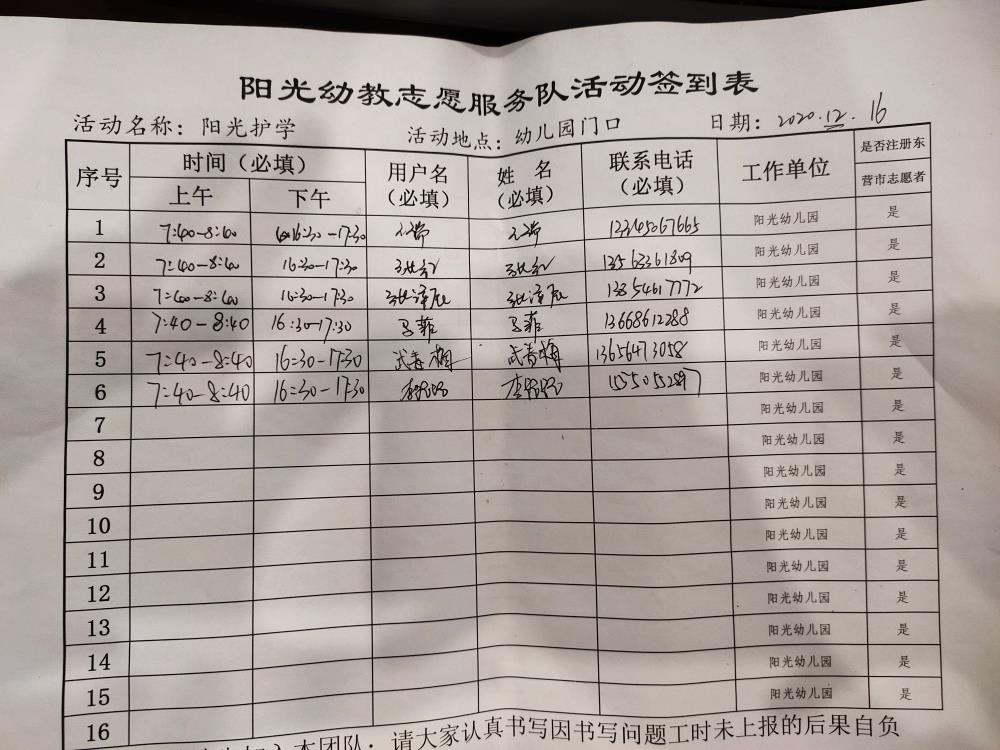 阳光幼教志愿服务队活动签到表
活动名称：阳光护学 活动地点：幼儿园门口 日期：2020.12.16
序号 时间（必填） 用户名（必填） 姓名（必填） 联系电话（必填） 工作单位 是否注册东营市志愿者
上午 下午
1 7:40-8:40 16:30-17:30 阳光幼儿园 是
2 7:40-8:40 16:30-17:30 13563361809 阳光幼儿园 是
3 7:40-8:40 16:30-17:30 13854617772 阳光幼儿园 是
4 7:40-8:40 16:30-17:30 马菲 马菲 13668612288 阳光幼儿园 是
5 7:40-8:40 16:30-17:30 武青梅 武青梅 13656473058 阳光幼儿园 是
6 7:40-8:40 16:30-17:30 阳光幼儿园 是
7 阳光幼儿园 是
8 阳光幼儿园 是
9 阳光幼儿园 是
10 阳光幼儿园 是
11 阳光幼儿园 是
12 阳光幼儿园 是
13 阳光幼儿园 是
14 阳光幼儿园 是
15 阳光幼儿园 是
16
加入本团队：请大家认真书写因书写问题工时未上报的后果自负